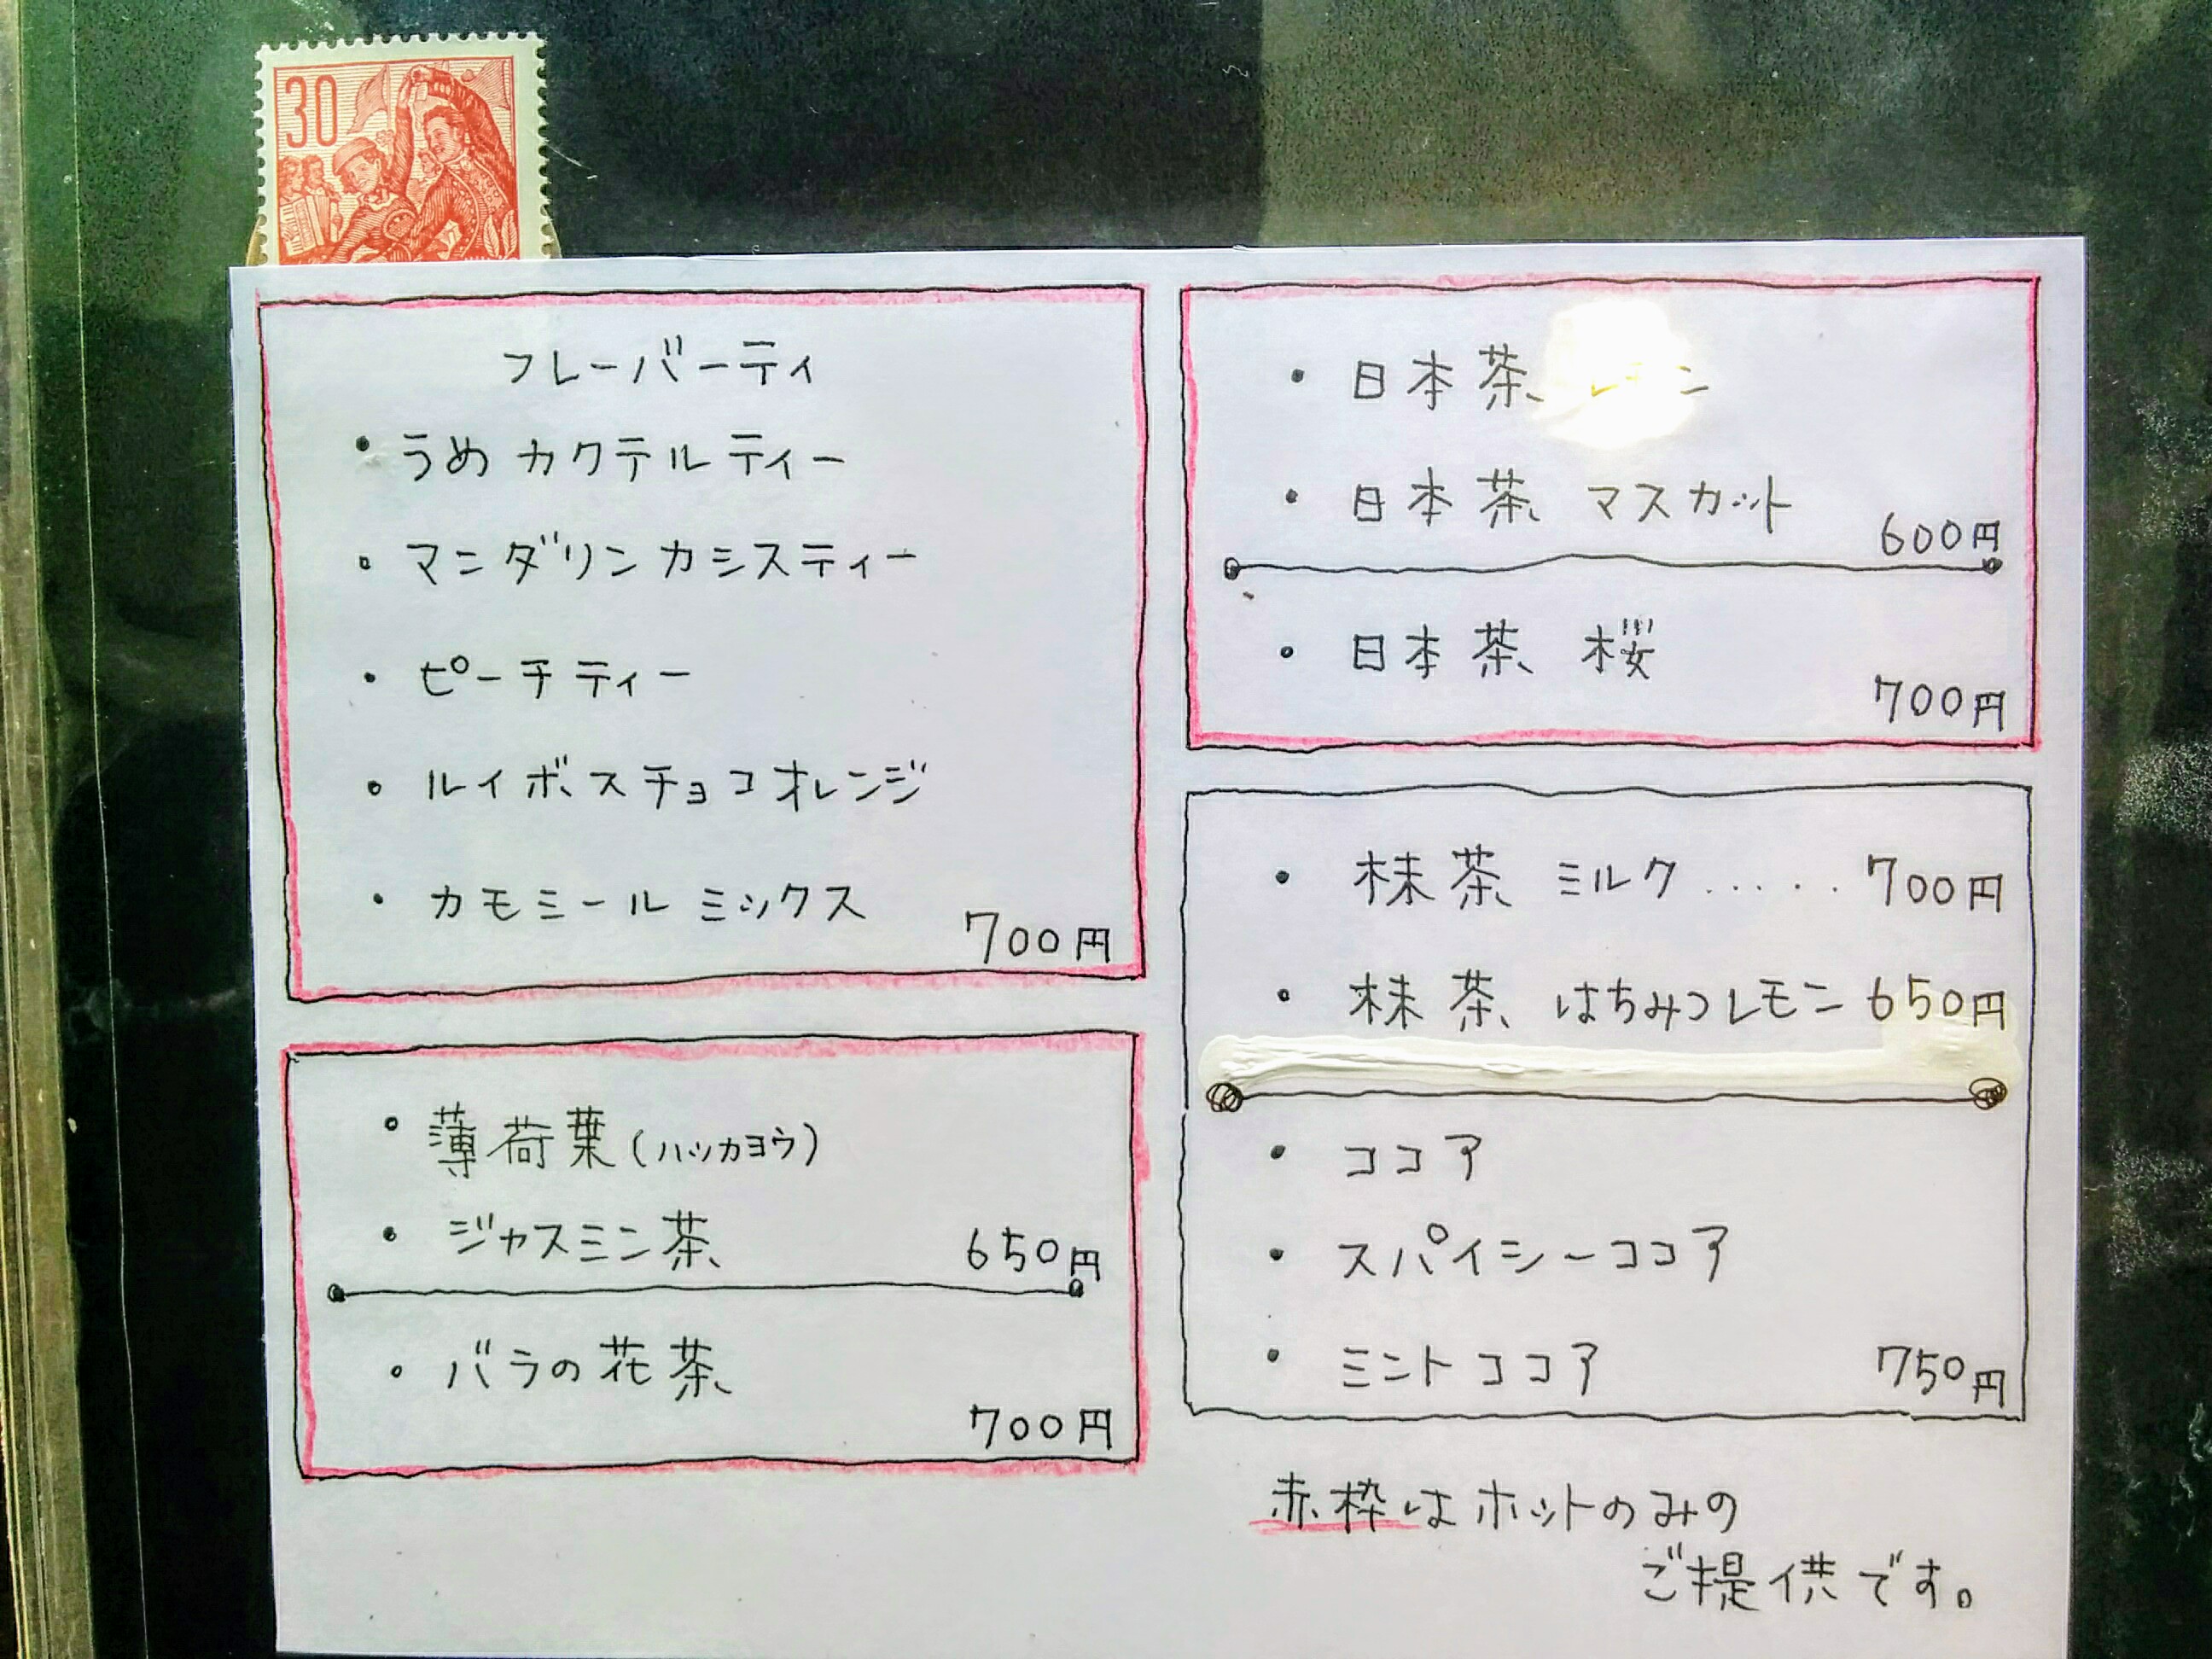 30
フレーバーティ
・うめカクテルティー
・マンダリンカシスティー
・ピーチティー
・ルイボスチョコオレンジ
・カモミールミックス
700円
・薄荷葉(ハッカヨウ)
・ジャスミン茶 650円
・バラの花茶
700円
・日本茶
・日本茶 マスカット
600円
・日本茶 桜
700円
・抹茶 ミルク.....700円
・抹茶 はちみつレモン 650円
・ココア
・スパイシーココア
・ミントココア 750円
赤枠はホットのみの
ご提供です。